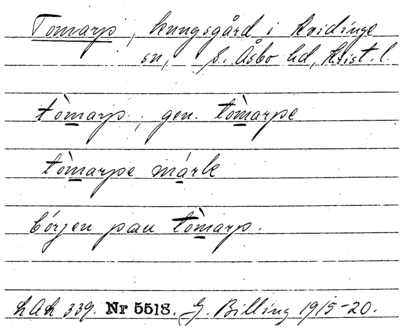 Tomarp, kungsgård i Kvidinge
sn, S. Åsbo hd, Krist. l.
tòmarp, gen. tòmarpe
tòmarpe mark
börjen pau tòmarp.
LAL 339. Nr 5518. G. Billing 1915-20.